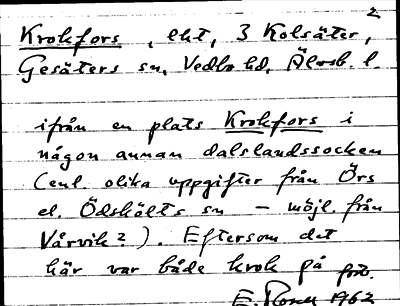 2
Krokfors, lht, 3 Kolsäter,
Gesäters sn, Vedbo hd, Älvsb. l.
ifrån en plats Krokfors i
någon annan dalslandssocken
(enl. olika uppgifter från Örs
el. Ödskölts sn – möjl. från
Vårvik?). Eftersom det
här var både krok på
E. 1962